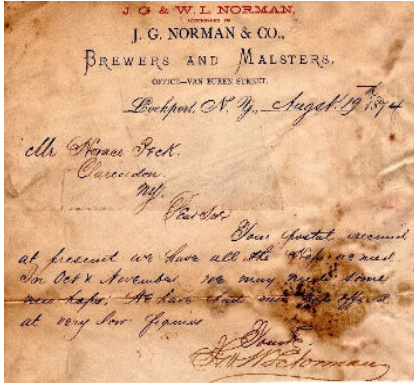 J G & W. L NORMAN,
SUCCESSORS TO
J. G. NORMAN & CO.,
BREWERS AND MALSTERS.
OFFICE—VAN BUREN STREET.
Lockport, N. Y., Augst 19th 1874
Mr Horace Peck.
Clarendon.
NY.
Dear Sir
Your postal received
at present we have all the Hops we need
In Oct & November we may need some
new hops; We have had new offered
at very low figures
Yours
J G & W L Norman